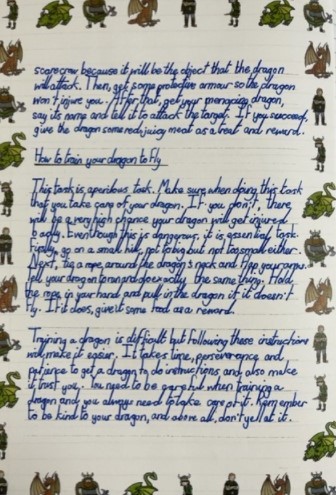 scarecrow because it will be the object that the dragon
will attack. Then, get some protective armour so the dragon
won't injure you. After that, get your menacing dragon,
say its name and tell it to attack the target. If you succeed,
give the dragon some red, juicy meat as a treat and reward.
How to train your dragon to fly
This task is a perilous task. Make sure when doing this task
that you take care of your dragon. If you don't, there
will be a very high chance your dragon will get injured
badly. Even though this is dangerous, it is essential task.
Firstly, go on a small hill, not too big but not too small either.
Next, tie a rope around the dragon's neck and flap your arms.
Tell your dragon to run and do exactly the same thing. Hold
the rope in your hand and pull in the dragon if it doesn't
fly. If it does, give it some food as a reward.
Training a dragon is difficult but following these instructions
will make it easier. It takes time, perseverance and
patience to get a dragon to do instructions and also make
it trust you. You need to be careful when training a
dragon and you always need to take care of it. Remember
to be kind to your dragon, and above all, don't yell at it.